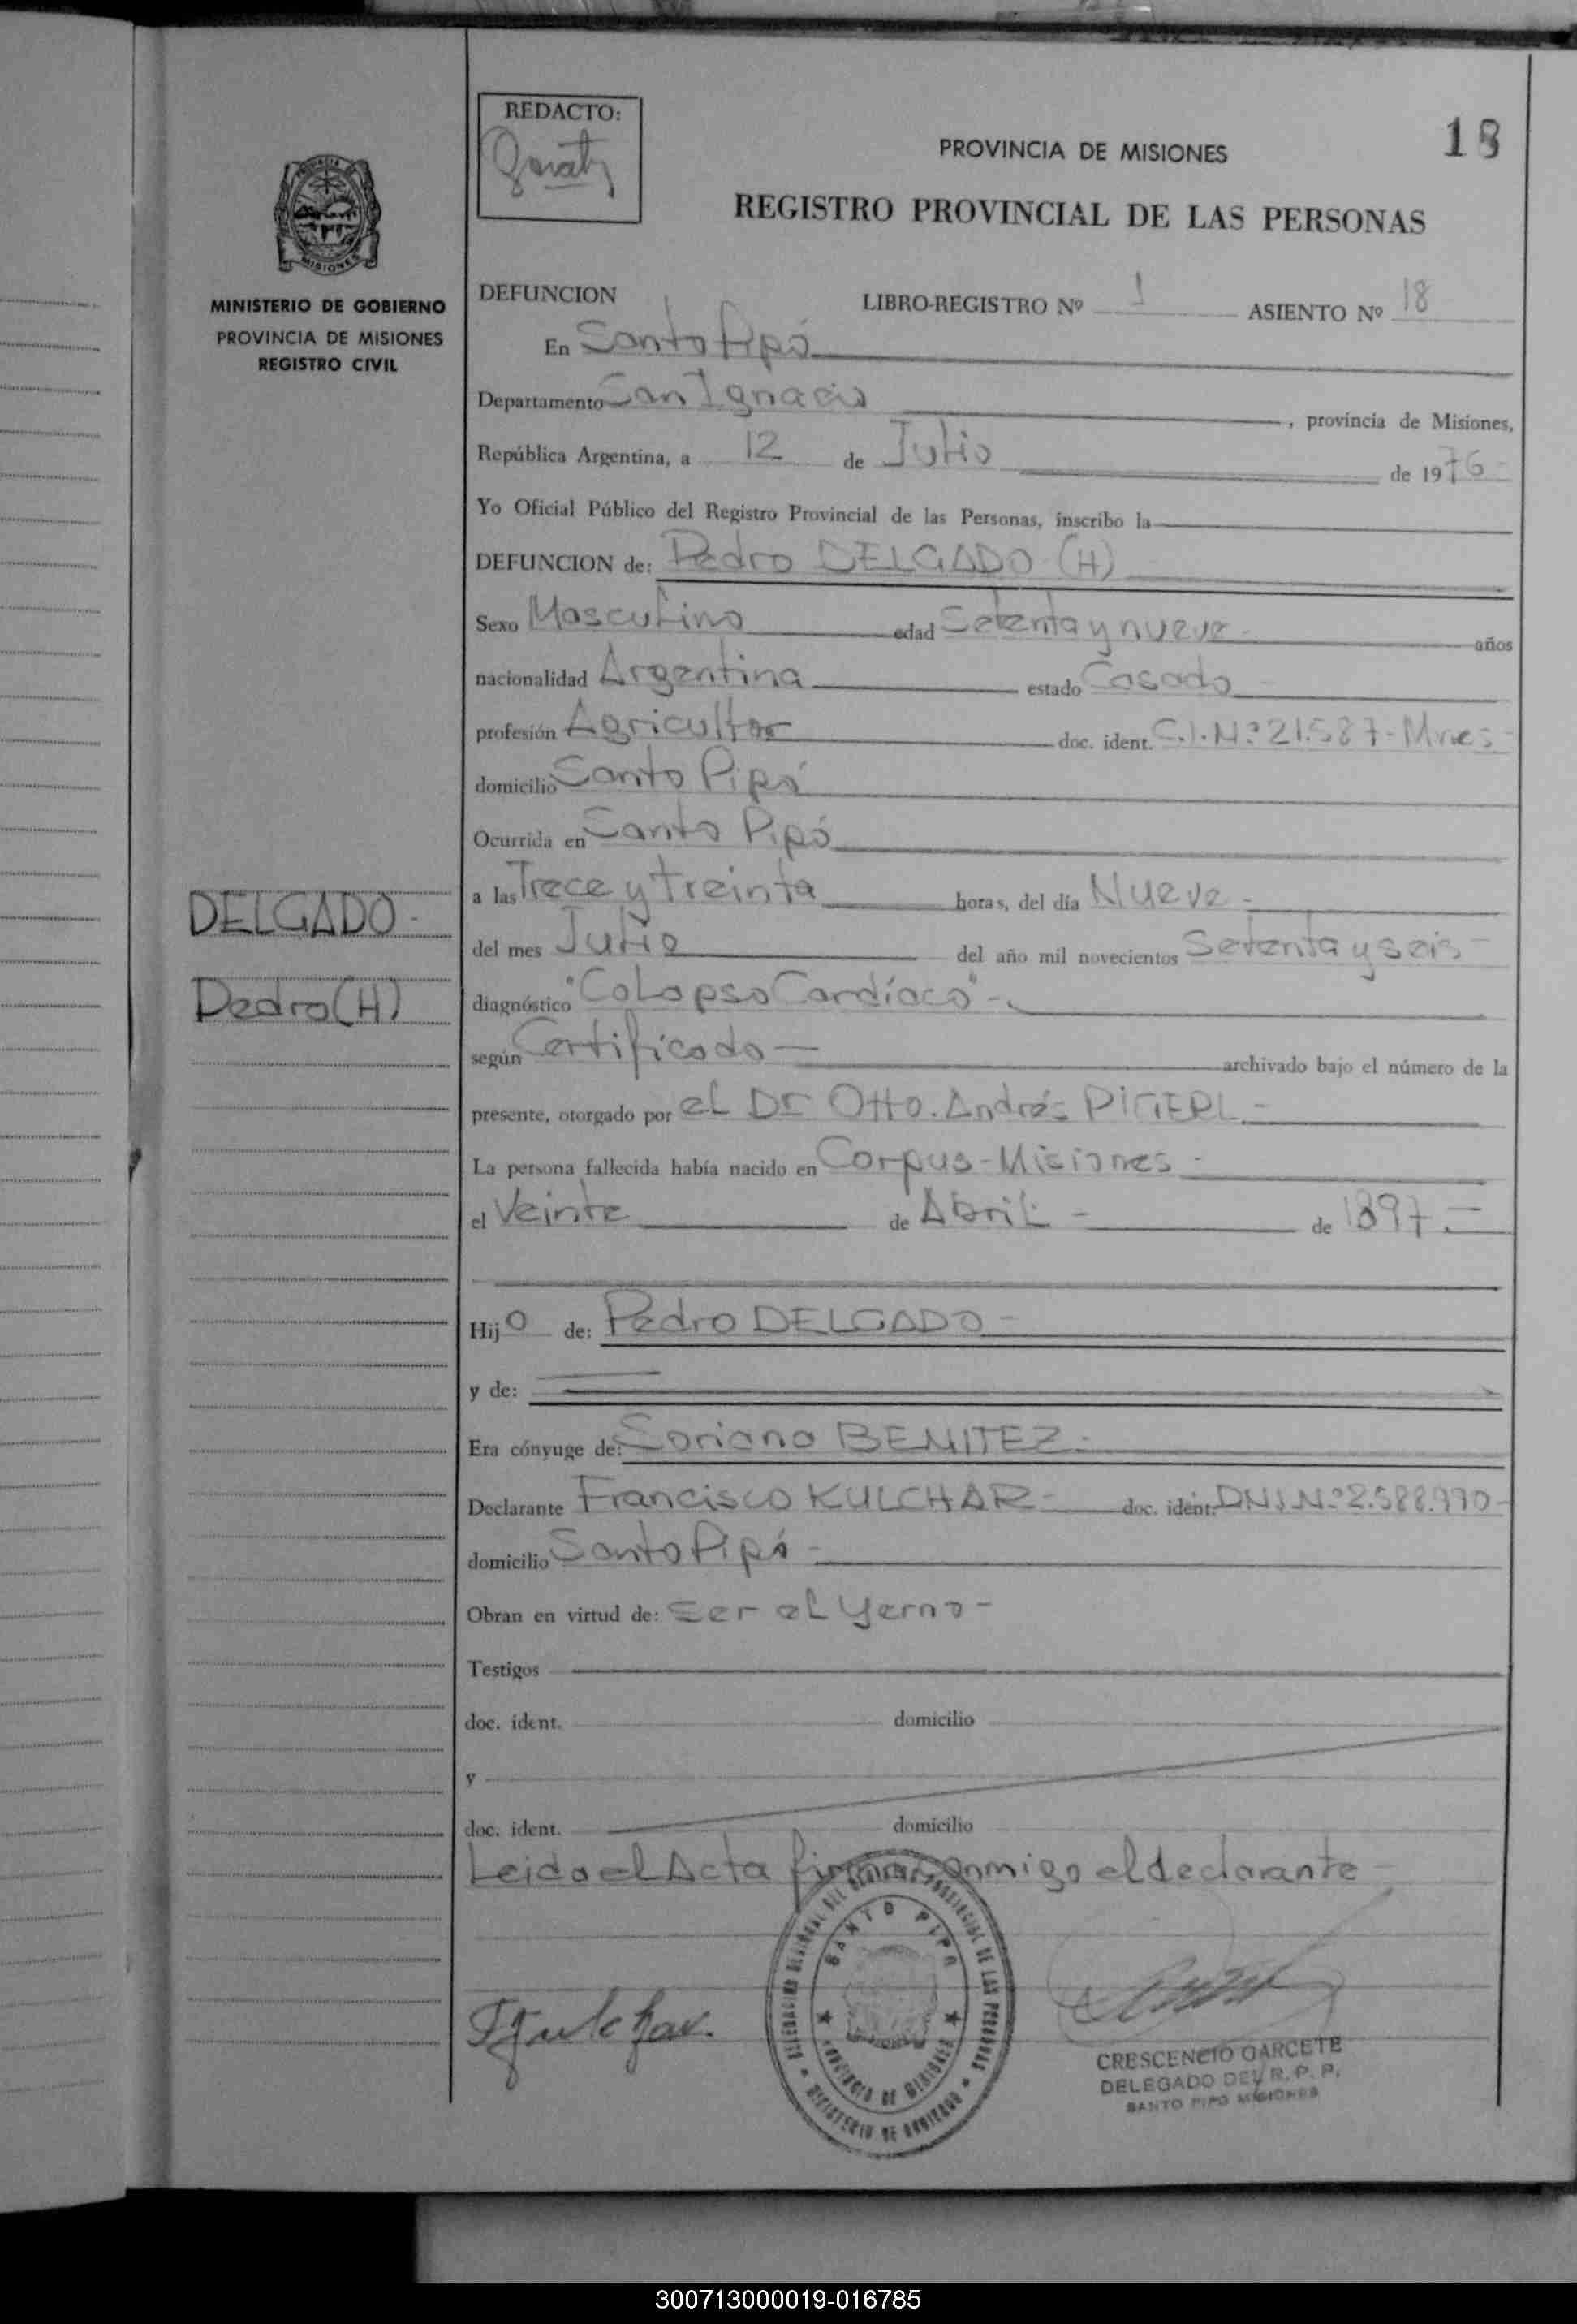 REDACTO:
18
PROVINCIA DE MISIONES
REGISTRO PROVINCIAL DE LAS PERSONAS
MISIONES
MINISTERIO DE GOBIERNO
PROVINCIA DE MISIONES
REGISTRO CIVIL
DEFUNCION LIBRO-REGISTRO Nº 1 ASIENTO Nº 18
En Santo Pipó
Departamento San Ignacio, provincia de Misiones,
República Argentina, a 12 de Julio de 1976-
Yo Oficial Público del Registro Provincial de las Personas, inscribo la
DEFUNCION de: Pedro DELGADO (H)
Sexo Masculino edad Setenta y nueve- años
nacionalidad Argentina estado Casado
profesión Agricultor doc. ident. C.I.Nº21.587-Mnes-
domicilio Santo Pipó
Ocurrida en Santo Pipó
a las Trece y treinta horas, del día Nueve-
DELGADO-
del mes Julio del año mil novecientos Setenta y seis-
Pedro (H)
diagnóstico "Colapso Cardíaco"-
según Certificado- archivado bajo el número de la
presente, otorgado por el Dr Otto. Andrés
La persona fallecida había nacido en Corpus-Misiones-
el Veinte de Abril- de 1897.-
Hijo de: Pedro DELGADO-
y de:
Era cónyuge de: Soriana BENITEZ-
Declarante Francisco KULCHAR- doc. ident. DNI.Nº2.588.990-
domicilio Santo Pipó-
Obran en virtud de: Ser el yerno-
Testigos
doc. ident. domicilio
y
doc. ident. domicilio
Leida el Acta firma conmigo el declarante-
SANTO PIPO
PROVINCIA DE MISIONES
MINISTERIO DE GOBIERNO
CRESCENCIO GARCETE
DELEGADO DEL R. P. P.
SANTO PIPO MISIONES
300713000019-016785